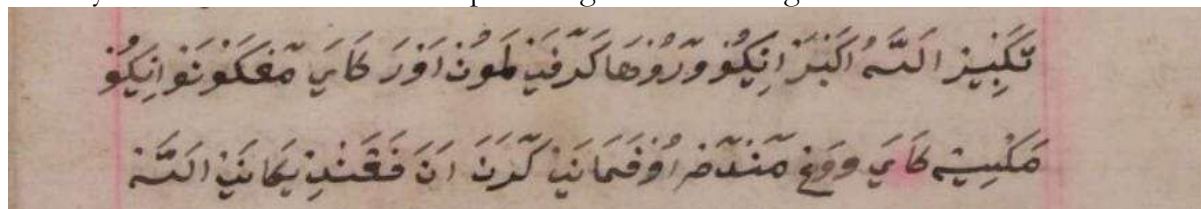 تَكْبِيْرْ اَللَّهُ اَكْبَرْ اِنِكُوْ وٓرُوْهَا كَرٓفَيْ لَمُوْنْ اَوْرَ كَايَ مٓڠكَوْنَوْ اِنِيكُوْ
مَكْسِيْه كَايَ ووَڠ مٓنْدٓمْ اُوْفَمَانَيْ كَرَنَ اَنَ فَڠَنْدِيْكَانَيْ اَللَّهْ